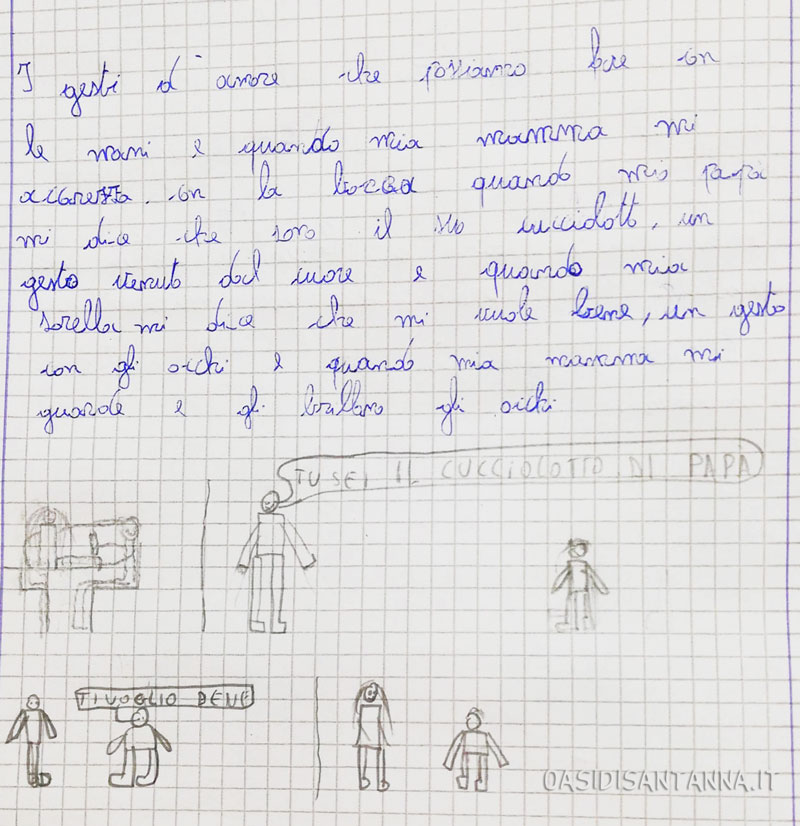 I gesti d'amore che possiamo fare con
le mani e quando mia mamma mi
accarezza. con la bocca quando mio papà
mi dice che sono il suo cucciolott, un
gesto venuto dal cuore e quando mia
sorella mi dice che mi vuole bene, un gesto
con gli occhi e quando mia mamma mi
guarda e gli brillano gli occhi
TU SEI IL CUCCIOLOTTO DI PAPÀ
TI VOGLIO BENE
OASIDISANTANNA.IT